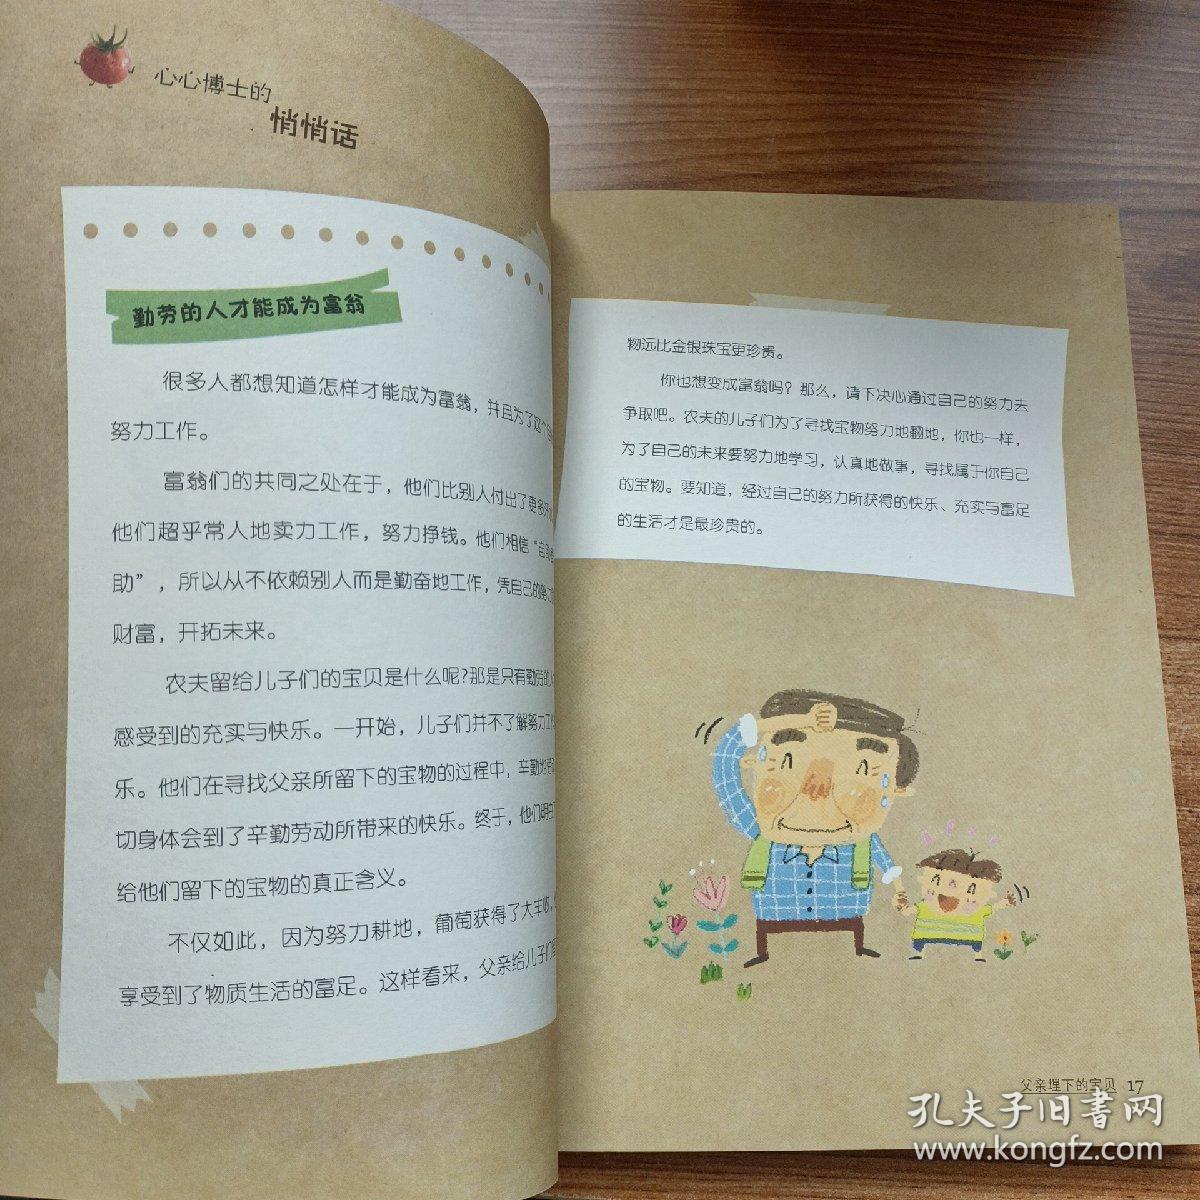 心心博士的
悄悄话
勤劳的人才能成为富翁
很多人都想知道怎样才能成为富翁，并且为了这个
努力工作。
富翁们的共同之处在于，他们比别人付出了更多
他们超乎常人地卖力工作，努力挣钱。他们相信“自
助”，所以从不依赖别人而是勤奋地工作，凭自己的努
财富，开拓未来。
农夫留给儿子们的宝贝是什么呢？那是只有勤劳的
感受到的充实与快乐。一开始，儿子们并不了解努力工
乐。他们在寻找父亲所留下的宝物的过程中，辛勤地
切身体会到了辛勤劳动所带来的快乐。终于，他们明白
给他们留下的宝物的真正含义。
不仅如此，因为努力耕地，葡萄获得了大丰收，
享受到了物质生活的富足。这样看来，父亲给儿子们
物远比金银珠宝更珍贵。
你也想变成富翁吗？那么，请下决心通过自己的努力去
争取吧。农夫的儿子们为了寻找宝物努力地翻地，你也一样，
为了自己的未来要努力地学习，认真地做事，寻找属于你自己
的宝物。要知道，经过自己的努力所获得的快乐、充实与富足
的生活才是最珍贵的。
父亲埋下的宝贝 17
孔夫子旧书网
www.kongfz.com